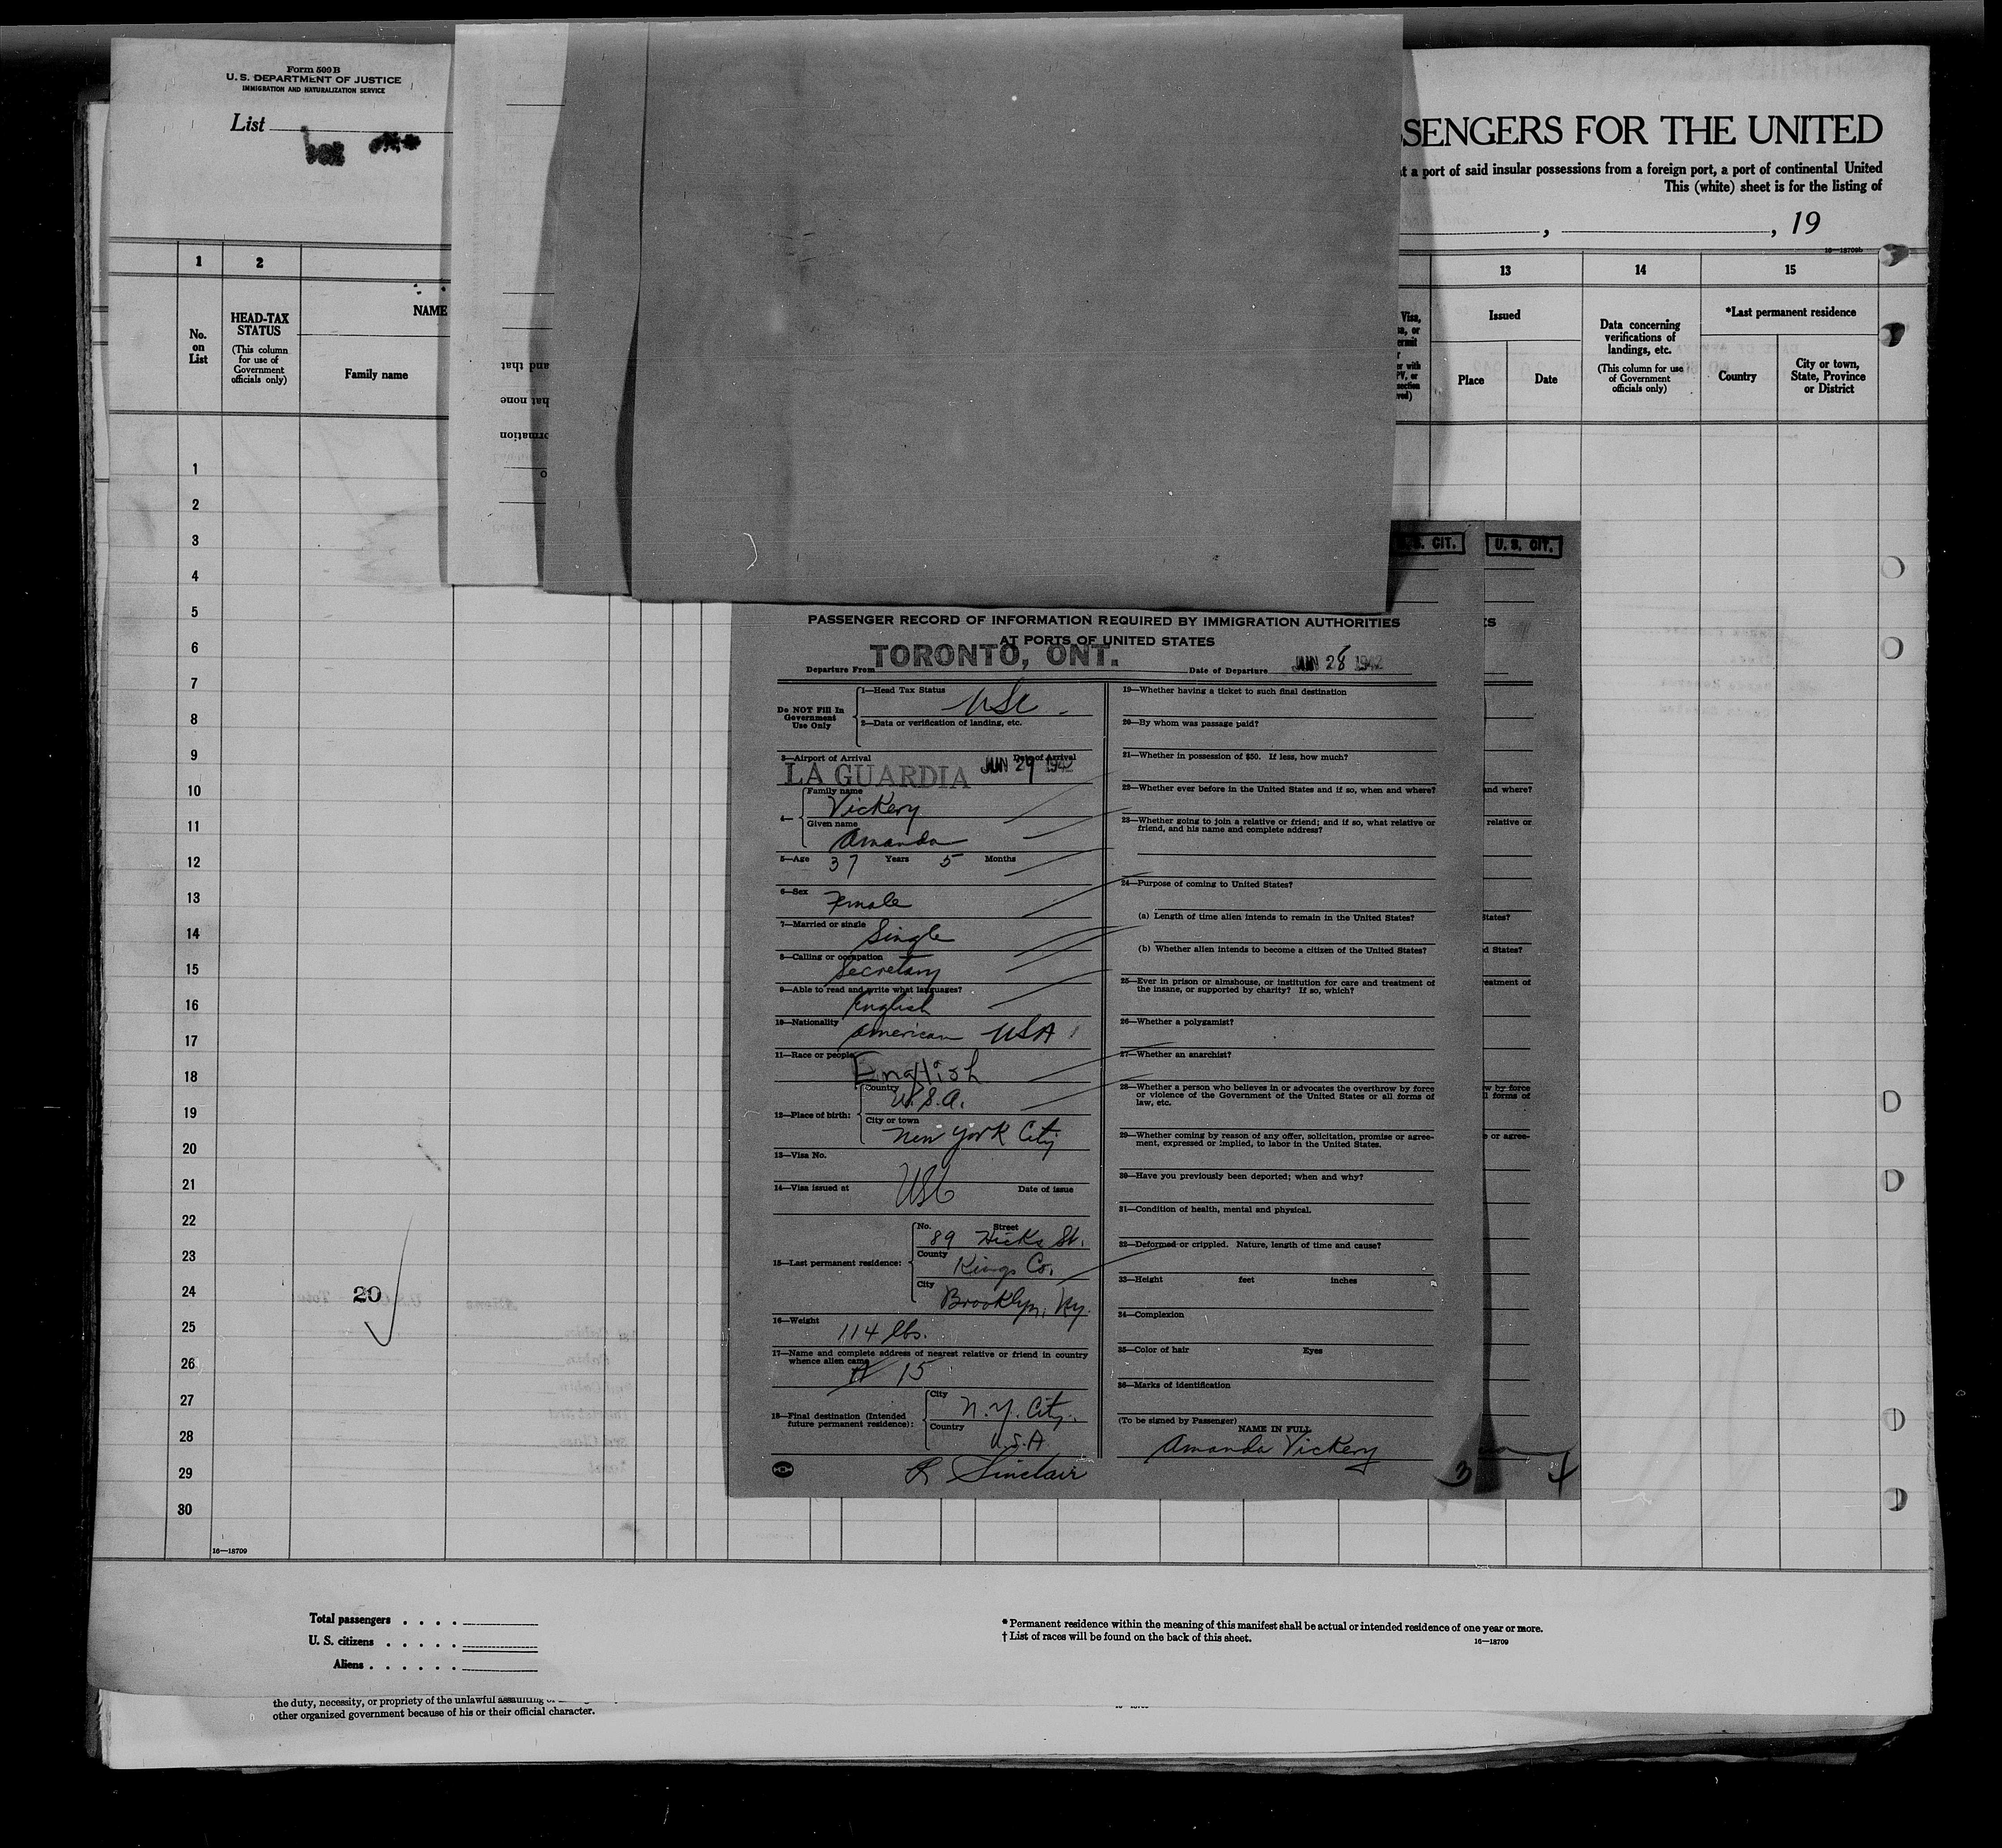 Form 500 B
U. S. DEPARTMENT OF JUSTICE
IMMIGRATION AND NATURALIZATION SERVICE
List
SSENGERS FOR THE UNITED
at a port of said insular possessions from a foreign port, a port of continental United
This (white) sheet is for the listing of
, , 19
16—18709b
1 2 13 14 15
No. on List
HEAD-TAX STATUS
(This column for use of Government officials only)
NAME
Family name
and that
hat none
ormation
o
Visa,
Issued
Place
Date
Data concerning verifications of landings, etc.
(This column for use of Government officials only)
*Last permanent residence
Country
City or town, State, Province or District
1
2
3
4
5
6
7
8
9
10
11
12
13
14
15
16
17
18
19
20
21
22
23
24
25
26
27
28
29
30
20
16—18709
S. CIT. U. S. CIT.
PASSENGER RECORD OF INFORMATION REQUIRED BY IMMIGRATION AUTHORITIES
AT PORTS OF UNITED STATES
Departure From TORONTO, ONT. Date of Departure 28 1942
Do NOT Fill In Government Use Only
1—Head Tax Status USC
2—Data or verification of landing, etc.
3—Airport of Arrival Date of Arrival
LA GUARDIA 29 1942
4—
Family name
Vickery
Given name
Amanda
5—Age 37 Years 5 Months
6—Sex
Female
7—Married or single
Single
8—Calling or occupation
Secretary
9—Able to read and write what languages?
English
10—Nationality
American USA
11—Race or people
English
12—Place of birth:
Country
U.S.A.
City or town
New York City
13—Visa No.
USC
14—Visa issued at Date of issue
15—Last permanent residence:
No. Street
89 Hicks St.
County
Kings Co.
City
Brooklyn, Ny.
16—Weight
114 lbs.
17—Name and complete address of nearest relative or friend in country
whence alien came
15
18—Final destination (Intended
future permanent residence):
City
N.Y. City.
Country
U.S.A
Sinclair
19—Whether having a ticket to such final destination
20—By whom was passage paid?
21—Whether in possession of $50. If less, how much?
22—Whether ever before in the United States and if so, when and where?
23—Whether going to join a relative or friend; and if so, what relative or
friend, and his name and complete address?
24—Purpose of coming to United States?
(a) Length of time alien intends to remain in the United States?
(b) Whether alien intends to become a citizen of the United States?
25—Ever in prison or almshouse, or institution for care and treatment of
the insane, or supported by charity? If so, which?
26—Whether a polygamist?
27—Whether an anarchist?
28—Whether a person who believes in or advocates the overthrow by force
or violence of the Government of the United States or all forms of
law, etc.
29—Whether coming by reason of any offer, solicitation, promise or agree-
ment, expressed or implied, to labor in the United States.
30—Have you previously been deported; when and why?
31—Condition of health, mental and physical.
32—Deformed or crippled. Nature, length of time and cause?
33—Height feet inches
34—Complexion
35—Color of hair Eyes
36—Marks of identification
(To be signed by Passenger)
NAME IN FULL
Amanda Vickery
3 4
ES
and where?
relative or
States?
d States?
eatment of
w by force
l forms of
e or agree-
Total passengers . . . .
U. S. citizens . . . . .
Aliens . . . . . .
* Permanent residence within the meaning of this manifest shall be actual or intended residence of one year or more.
† List of races will be found on the back of this sheet.
16—18709
the duty, necessity, or propriety of the unlawful assaulting
other organized government because of his or their official character.